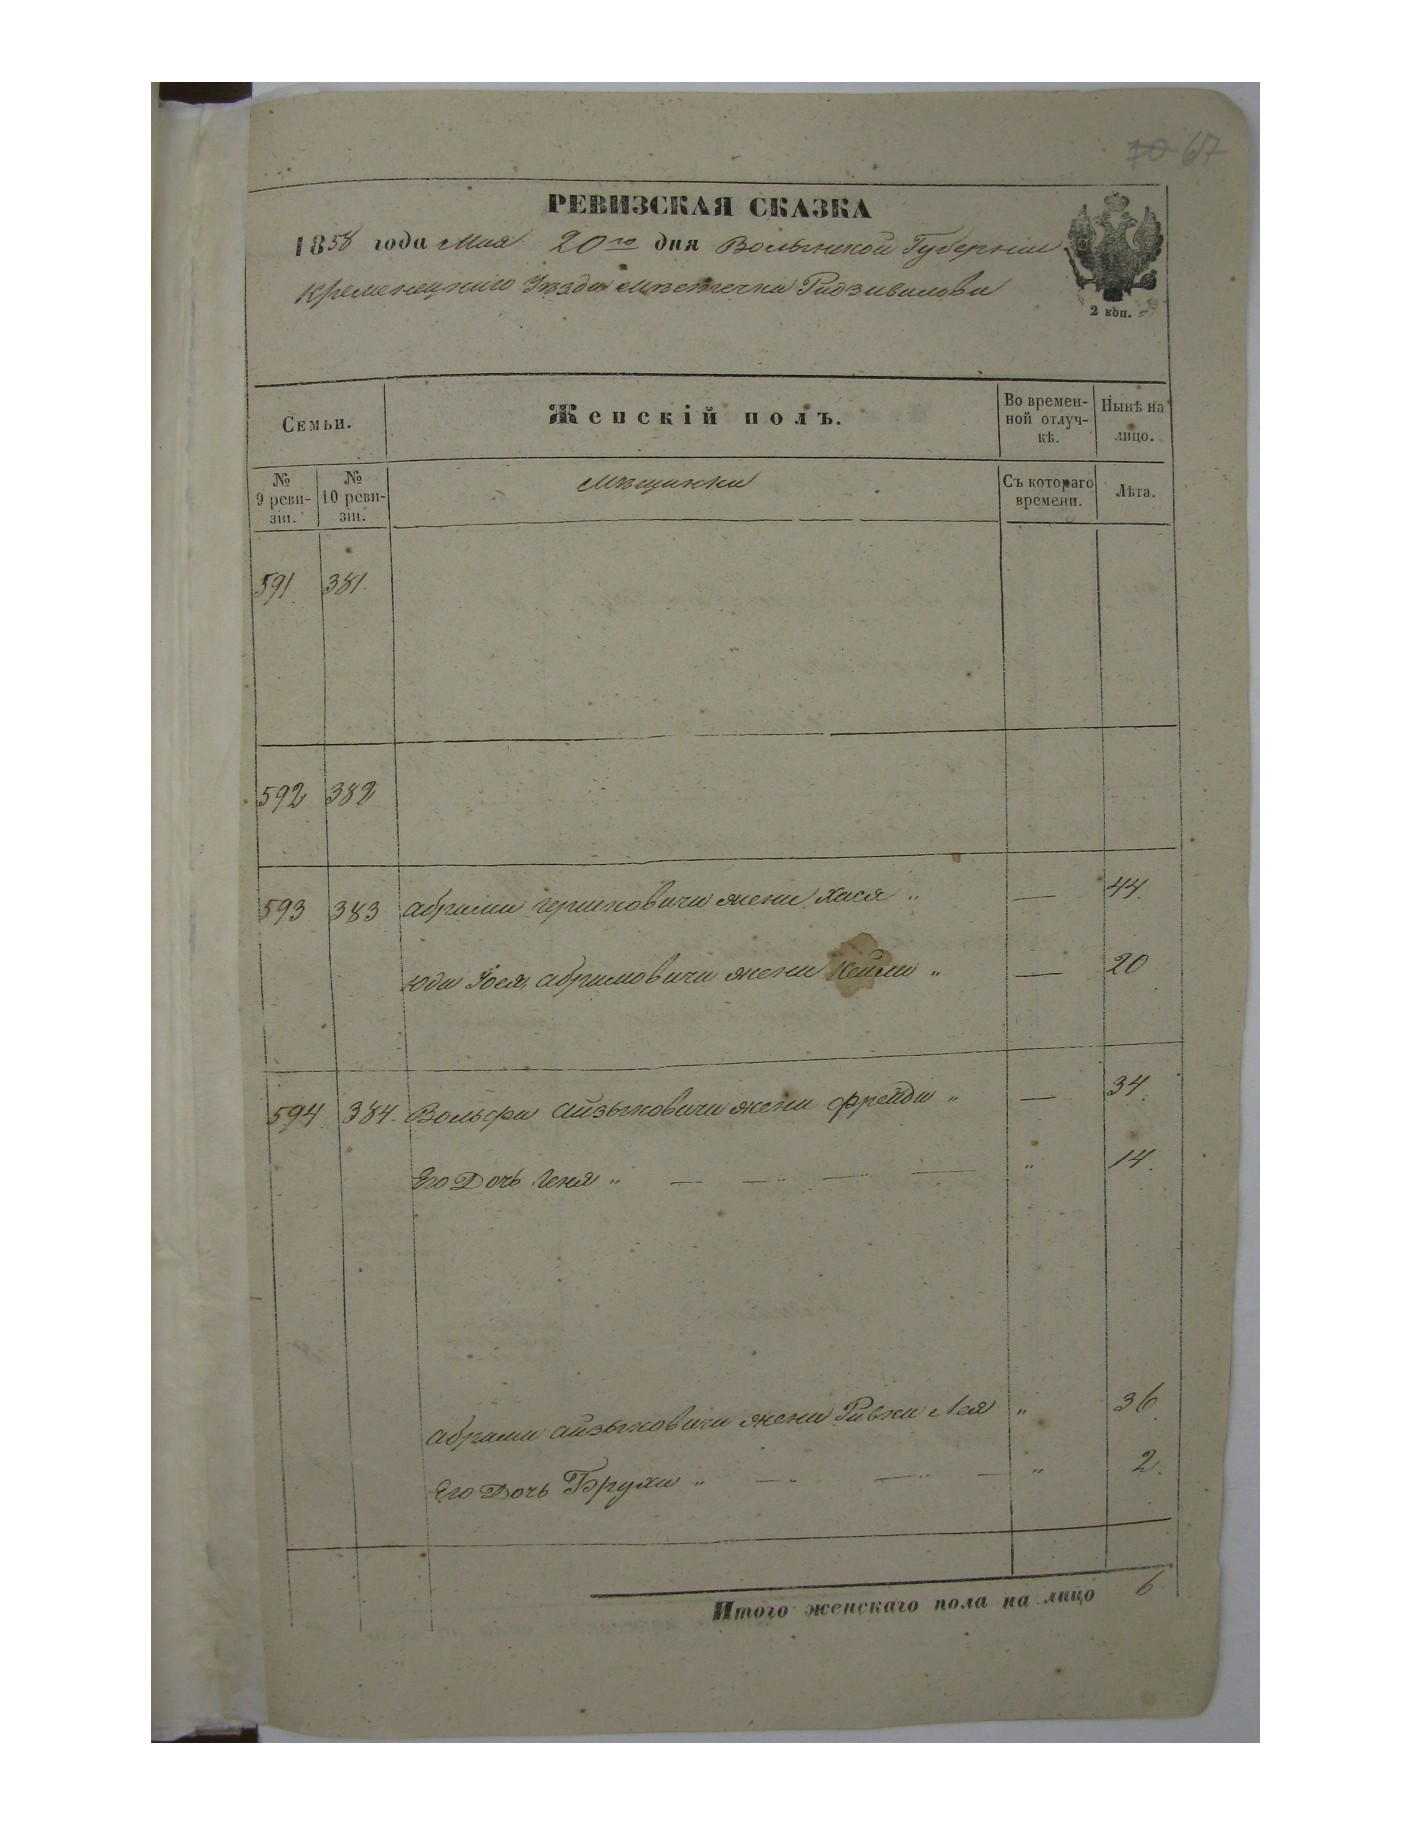 70 67
РЕВИЗСКАЯ СКАЗКА
1858 года Мая 20го дня Волынской Губерніи
Кременецкаго Уѣзда мѣстечка Радзивилова
2 коп.
Семьи.
Женскій полъ.
Во времен-
ной отлуч-
кѣ.
Нынѣ на
лицо.
№
9 реви-
зіи.
№
10 реви-
зіи.
мѣщанки
Съ котораго
времени.
Лѣта.
591 381.
592 382
593 383 Абрама Гершковича жена Хася „ — 44.
Юда Іоел. Абрамовича жена Кейла „ — 20
594. 384. Вольфа Айзыковича жена Фрейда „ — 34.
Его Дочь Геня „ — — — — „ 14.
Абрама Айзыковича жена Ривка Лея „ 36.
Его Дочь Бруха „ — — — „ 2.
Итого женскаго пола на лицо 6